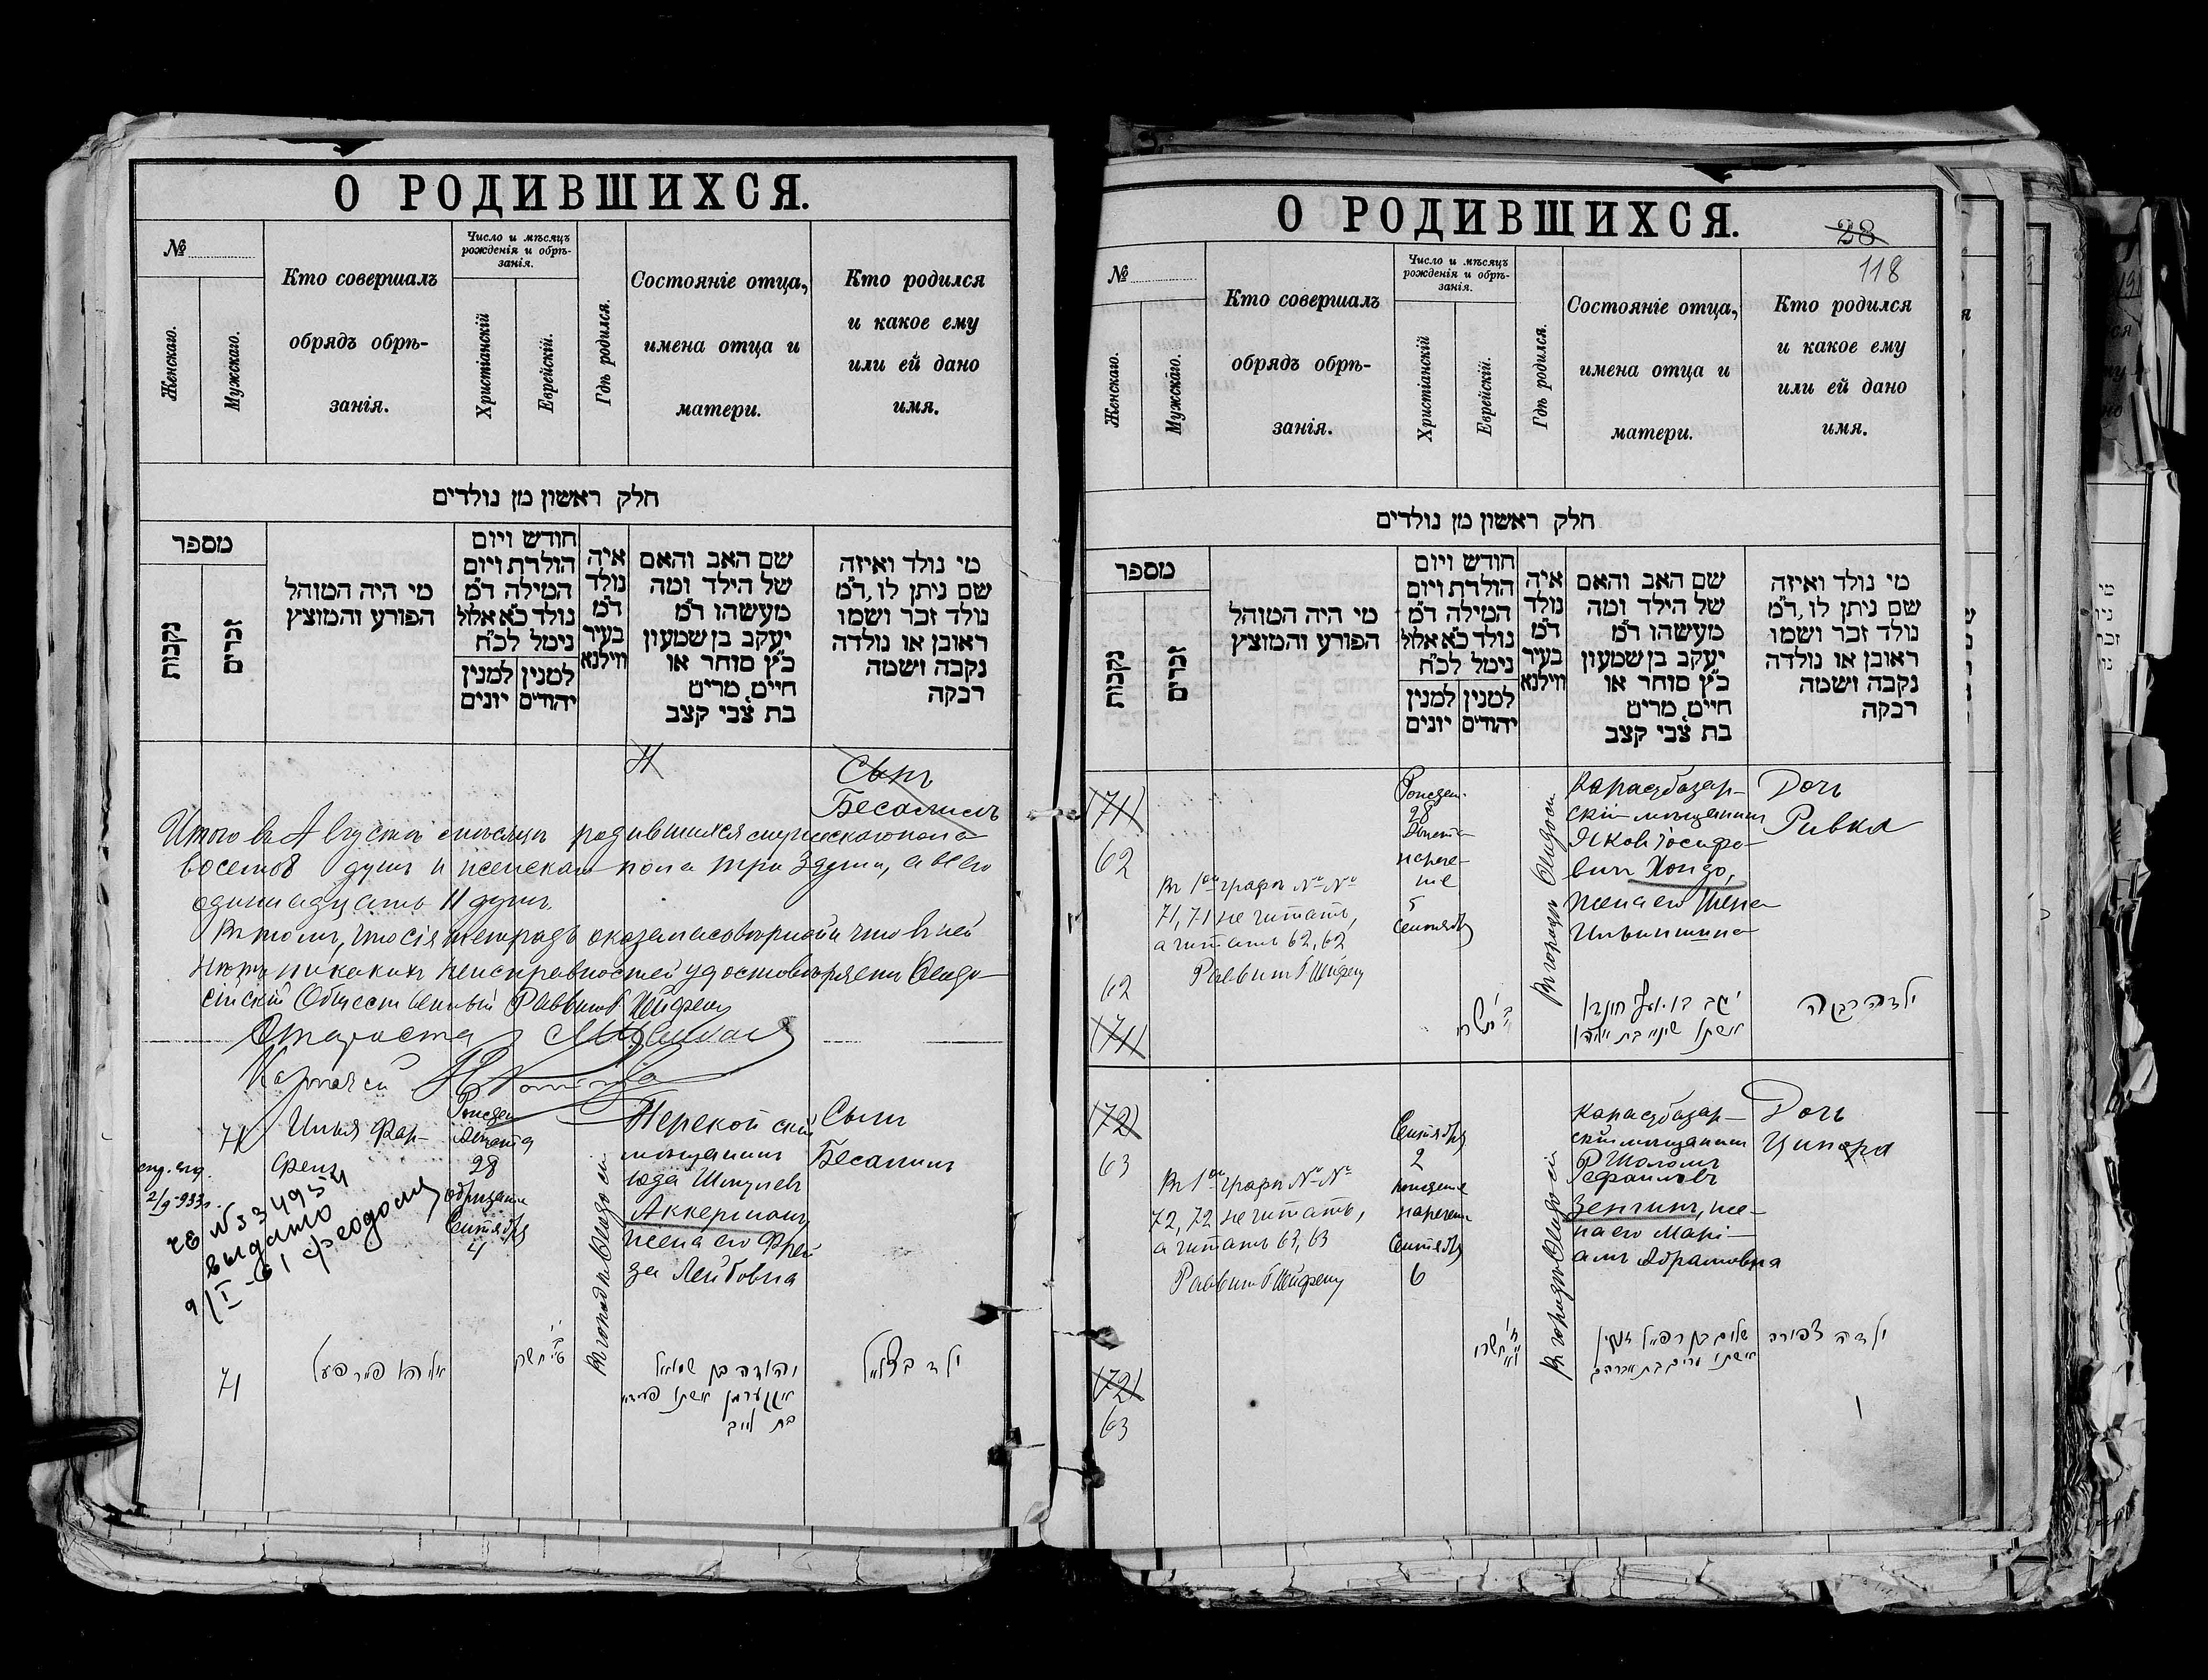 О РОДИВШИХСЯ.
№
Женскаго.
Мужскаго.
Кто совершалъ
обрядъ обрѣ-
занія.
Число и мѣсяцъ
рожденія и обрѣ-
занія.
Христіанскій
Еврейскій.
Гдѣ родился.
Состояніе отца,
имена отца и
матери.
Кто родился
и какое ему
или ей дано
имя.
חלק ראשון מן נולדים
מספר
נקבות
זכרים
מי היה המוהל
הפורע והמוצץ
חודש ויום
הולדת ויום
המילה ד״מ
נולד כ״א אלול
נימל לכ״ח
למנין יהודים
למנין יונים
איה
נולד
ד״מ
בעיר
ווילנא
שם האב והאם
של הילד ומה
מעשהו ד״מ
יעקב בן שמעון
כ״ץ סוחר או
חיים, מרים
בת צבי קצב
מי נולד ואיזה
שם ניתן לו, ד״מ
נולד זכר ושמו
ראובן או נולדה
נקבה ושמה
רבקה
Сынъ
Итого въ Августѣ мѣсяцѣ родившихся мужскаго пола
восемь 8 душъ и женскаго пола три 3 души, а всего
одинадцать 11 душъ.
Въ томъ, что сія тетрадь оказалась вѣрной и что въ ней
нѣтъ никакихъ неисправностей удостовѣряетъ Ѳеодо-
сійскій Общественный Раввинъ
Староста
Казначей
71
Илья Фар-
Рожден.
Августа
28
обрѣзанія
Сентября
4
Въ городѣ Ѳеодосіи
Перекопскій
мѣщанинъ
Юда Шмулевъ
Аккерманъ,
жена его
Лейбовна
Сынъ
2/9-933г.
выдано
9/I-61 Феодосия
71
יהודה בן שמואל
ילד בצלאל
О РОДИВШИХСЯ.
28
118
№
Женскаго.
Мужскаго.
Кто совершалъ
обрядъ обрѣ-
занія.
Число и мѣсяцъ
рожденія и обрѣ-
занія.
Христіанскій
Еврейскій.
Гдѣ родился.
Состояніе отца,
имена отца и
матери.
Кто родился
и какое ему
или ей дано
имя.
חלק ראשון מן נולדים
מספר
נקבות
זכרים
מי היה המוהל
הפורע והמוצץ
חודש ויום
הולדת ויום
המילה ד״מ
נולד כ״א אלול
נימל לכ״ח
למנין יהודים
למנין יונים
איה
נולד
ד״מ
בעיר
ווילנא
שם האב והאם
של הילד ומה
מעשהו ד״מ
יעקב בן שמעון
כ״ץ סוחר או
חיים, מרים
בת צבי קצב
מי נולד ואיזה
שם ניתן לו, ד״מ
נולד זכר ושמו
ראובן או נולדה
נקבה ושמה
רבקה
71
62
Въ 1ой графѣ №№
71, 71 не читать,
а читать 62, 62
Раввинъ
Рожден.
28
Августа
нарече-
ніе
5
Сентября
Въ городѣ Ѳеодосіи
Карасубазар-
скій мѣщанинъ
Яковъ Іосифо-
вичъ Хондо,
жена его Шена
Ильинишна
Дочь
Ривка
62
71
ילדה רבקה
72
63
Въ 1ой графѣ №№
72, 72 не читать,
а читать 63, 63
Раввинъ
Сентября
2
рожденіе
нареченіе
Сентября
6
Въ городѣ Ѳеодосіи
Карасубазар-
скій мѣщанинъ
Шоломъ
Рефаиловъ
Зенгинъ, же-
на его Марі-
амъ Абрамовна
Дочь
Ципора
72
63
שלום בן רפאל זנגין
אשתו מרים בת אברהם
ילדה צפורה